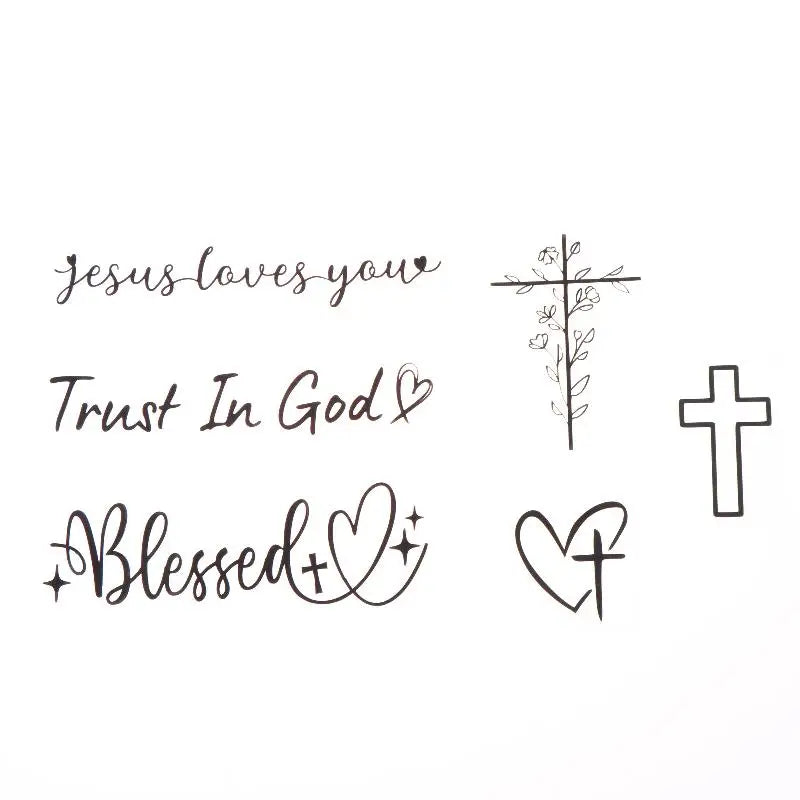 Jesus loves you
Trust In God
Blessed